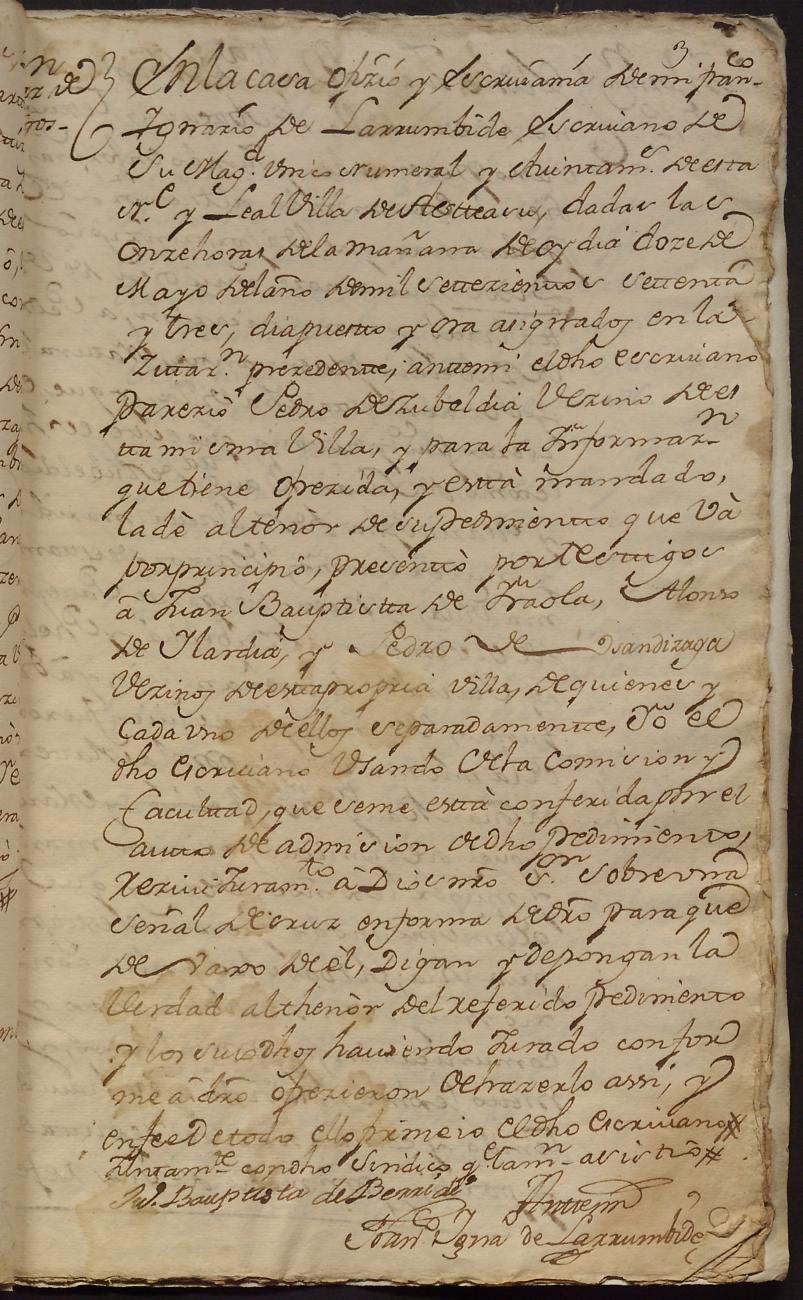 3
En la casa ofizio y Escrivania de mi Franco
Ignacio de Larrumbide Escriviano de
Su Magd. Unico Numeral y Aiuntamto. de esta
N.e y Leal Villa de Asteasu, dadas las
onze horas de la mañana de oy dia doze de
Mayo del año de mil settezientos settenta
y tres, dia puesto y ora asignados en la
Zitazn. prezedente, ante mi el dho escriviano
parezio Pedro de Zubeldia Vezino de es
tta misma Villa, y para la Informazn
que tiene ofrezida, y està mandado,
la dè al tenòr de su pedimiento que Và
por principio, presentò por testigos
â Juan Bauptista de Yraola, Alonso
de Ylardia, y Pedro de Usandizaga
Vezinos de esta propria villa, de quienes y
Cada uno de ellos separadamente, Yo el
dho escriviano Usando de la Comision y
facultad, que se me està conferida por el
auto de admision de dho pedimiento,
rezivi Juramto. â Dios nro Sor. sobre una
señal de cruz en forma de dro para que
de vaxo de èl, Digan y depongan la
Verdad al thenòr del referido pedimiento
y los suso dhos haviendo Jurado confor
me â dro ofrezieron de hazerlo assi, y
en fee de todo ello firme io el dho escriviano
Juntamte. con dho Sindico qe. tamn. asistiò
Jun. Bauptista de
Ante mi
Fran.co Igna.o de Larrumbide